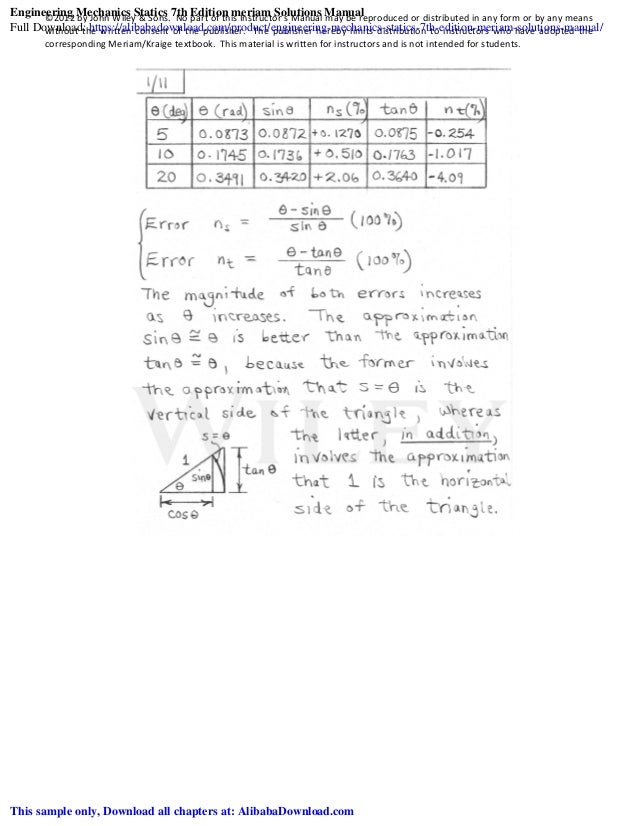 Engineering Mechanics Statics 7th Edition meriam Solutions Manual
© 2012 by John Wiley & Sons. No part of this Instructor's Manual may be reproduced or distributed in any form or by any means
Full Download: https://alibabadownload.com/product/engineering-mechanics-statics-7th-edition-meriam-solutions-manual/
without the written consent of the publisher. The publisher hereby limits distribution to instructors who have adopted the
corresponding Meriam/Kraige textbook. This material is written for instructors and is not intended for students.
1/11
θ (deg) θ (rad) sinθ ns (%) tanθ nt (%)
5 0.0873 0.0872 +0.1270 0.0875 -0.254
10 0.1745 0.1736 +0.510 0.1763 -1.017
20 0.3491 0.3420 +2.06 0.3640 -4.09
Error ns = θ-sinθ / sinθ (100%)
Error nt = θ-tanθ / tanθ (100%)
The magnitude of both errors increases
as θ increases. The approximation
sinθ ≅ θ is better than the approximation
tanθ ≅ θ, because the former involves
the approximation that s=θ is the
vertical side of the triangle, whereas
the latter, in addition,
involves the approximation
that 1 is the horizontal
side of the triangle.
s=θ
1
sinθ
tanθ
θ
cosθ
WILEY
This sample only, Download all chapters at: AlibabaDownload.com